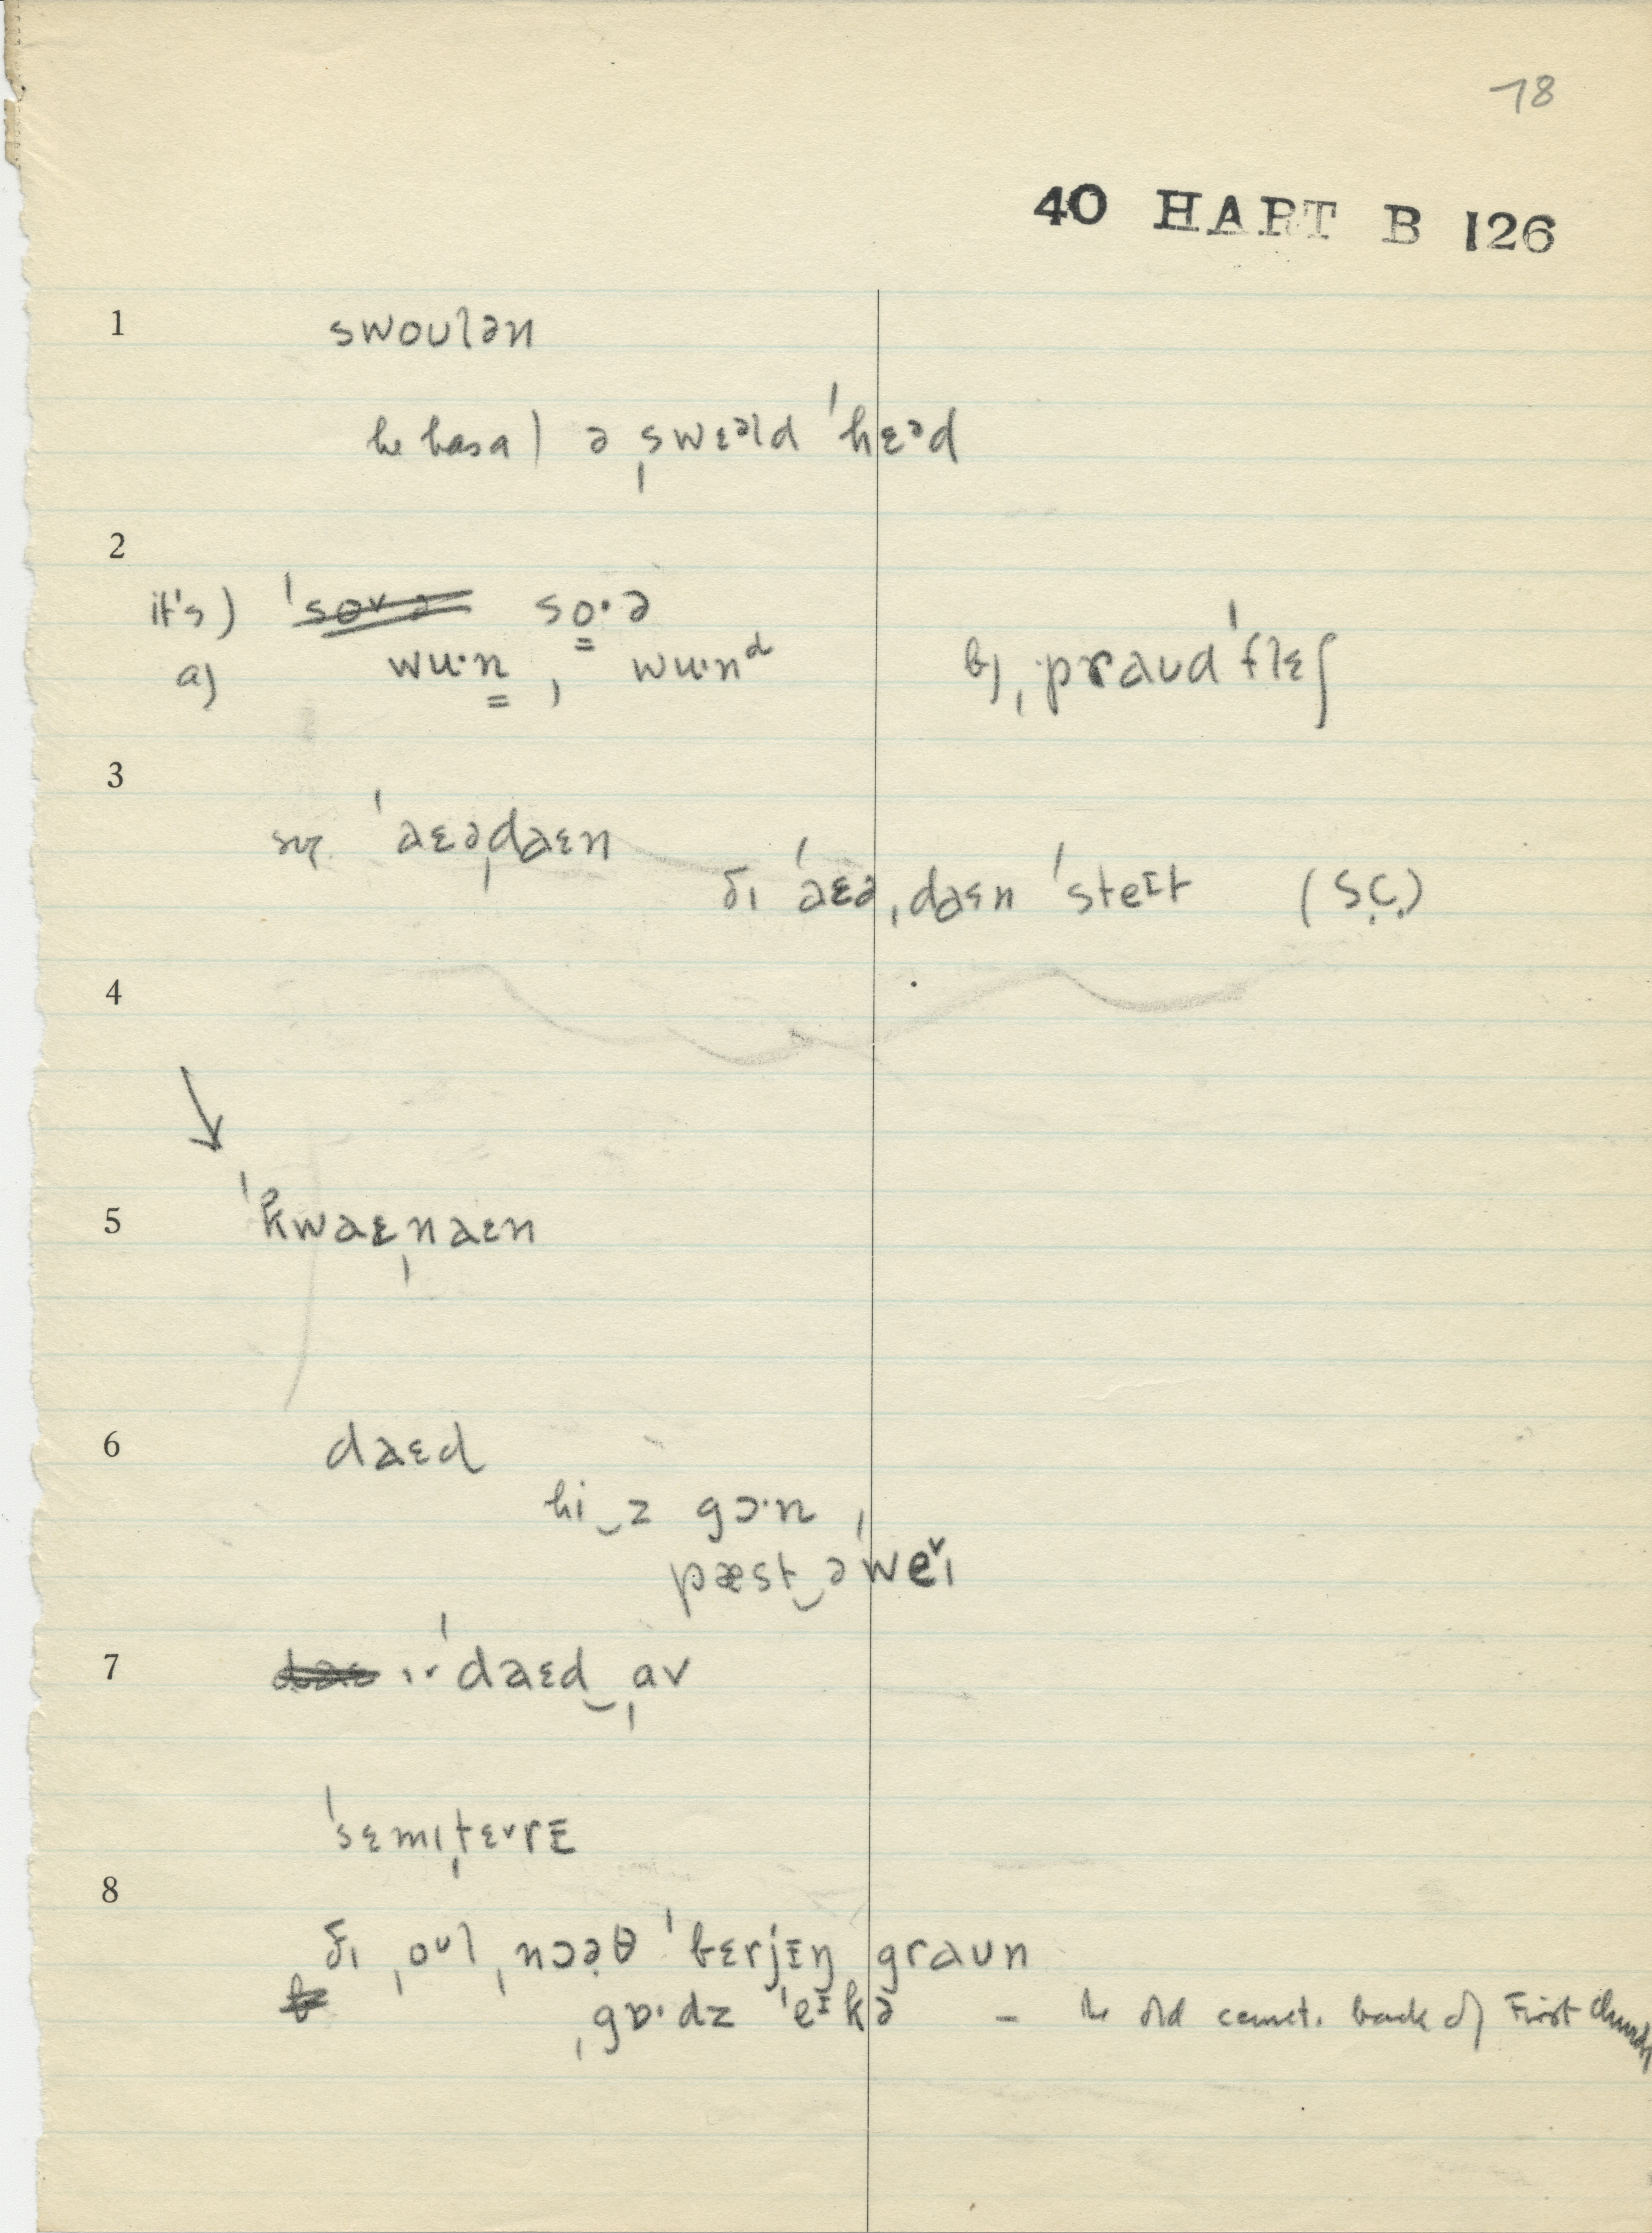 78
40 HART B 126
1 swoulən
he has a) ə ˌswɛəld ˈhɛəd
2
it's) so·ə
a) wu·n , wu·nᵈ b) ˌpraud ˈflɛʃ
3
ˈaɛəˌdaɛn
ðɪ ˈaɛəˌdaɛn ˈsteɪt (S.C.)
4
5 ˈkwaɛˌnaɛn
6 daɛd
hi‿z gɔ·n ,
pæst‿əˈweˇɪ
7 ɪˇ ˈdaɛd‿ˌav
ˈsɛmɪˌtɛˇrɪ
8
ðɪ ˌoʊl ˌnɔəθ ˈbɛrjɪŋ graun
ˌgɒ·dz ˈeɪkə – the old cemet. back of First Church